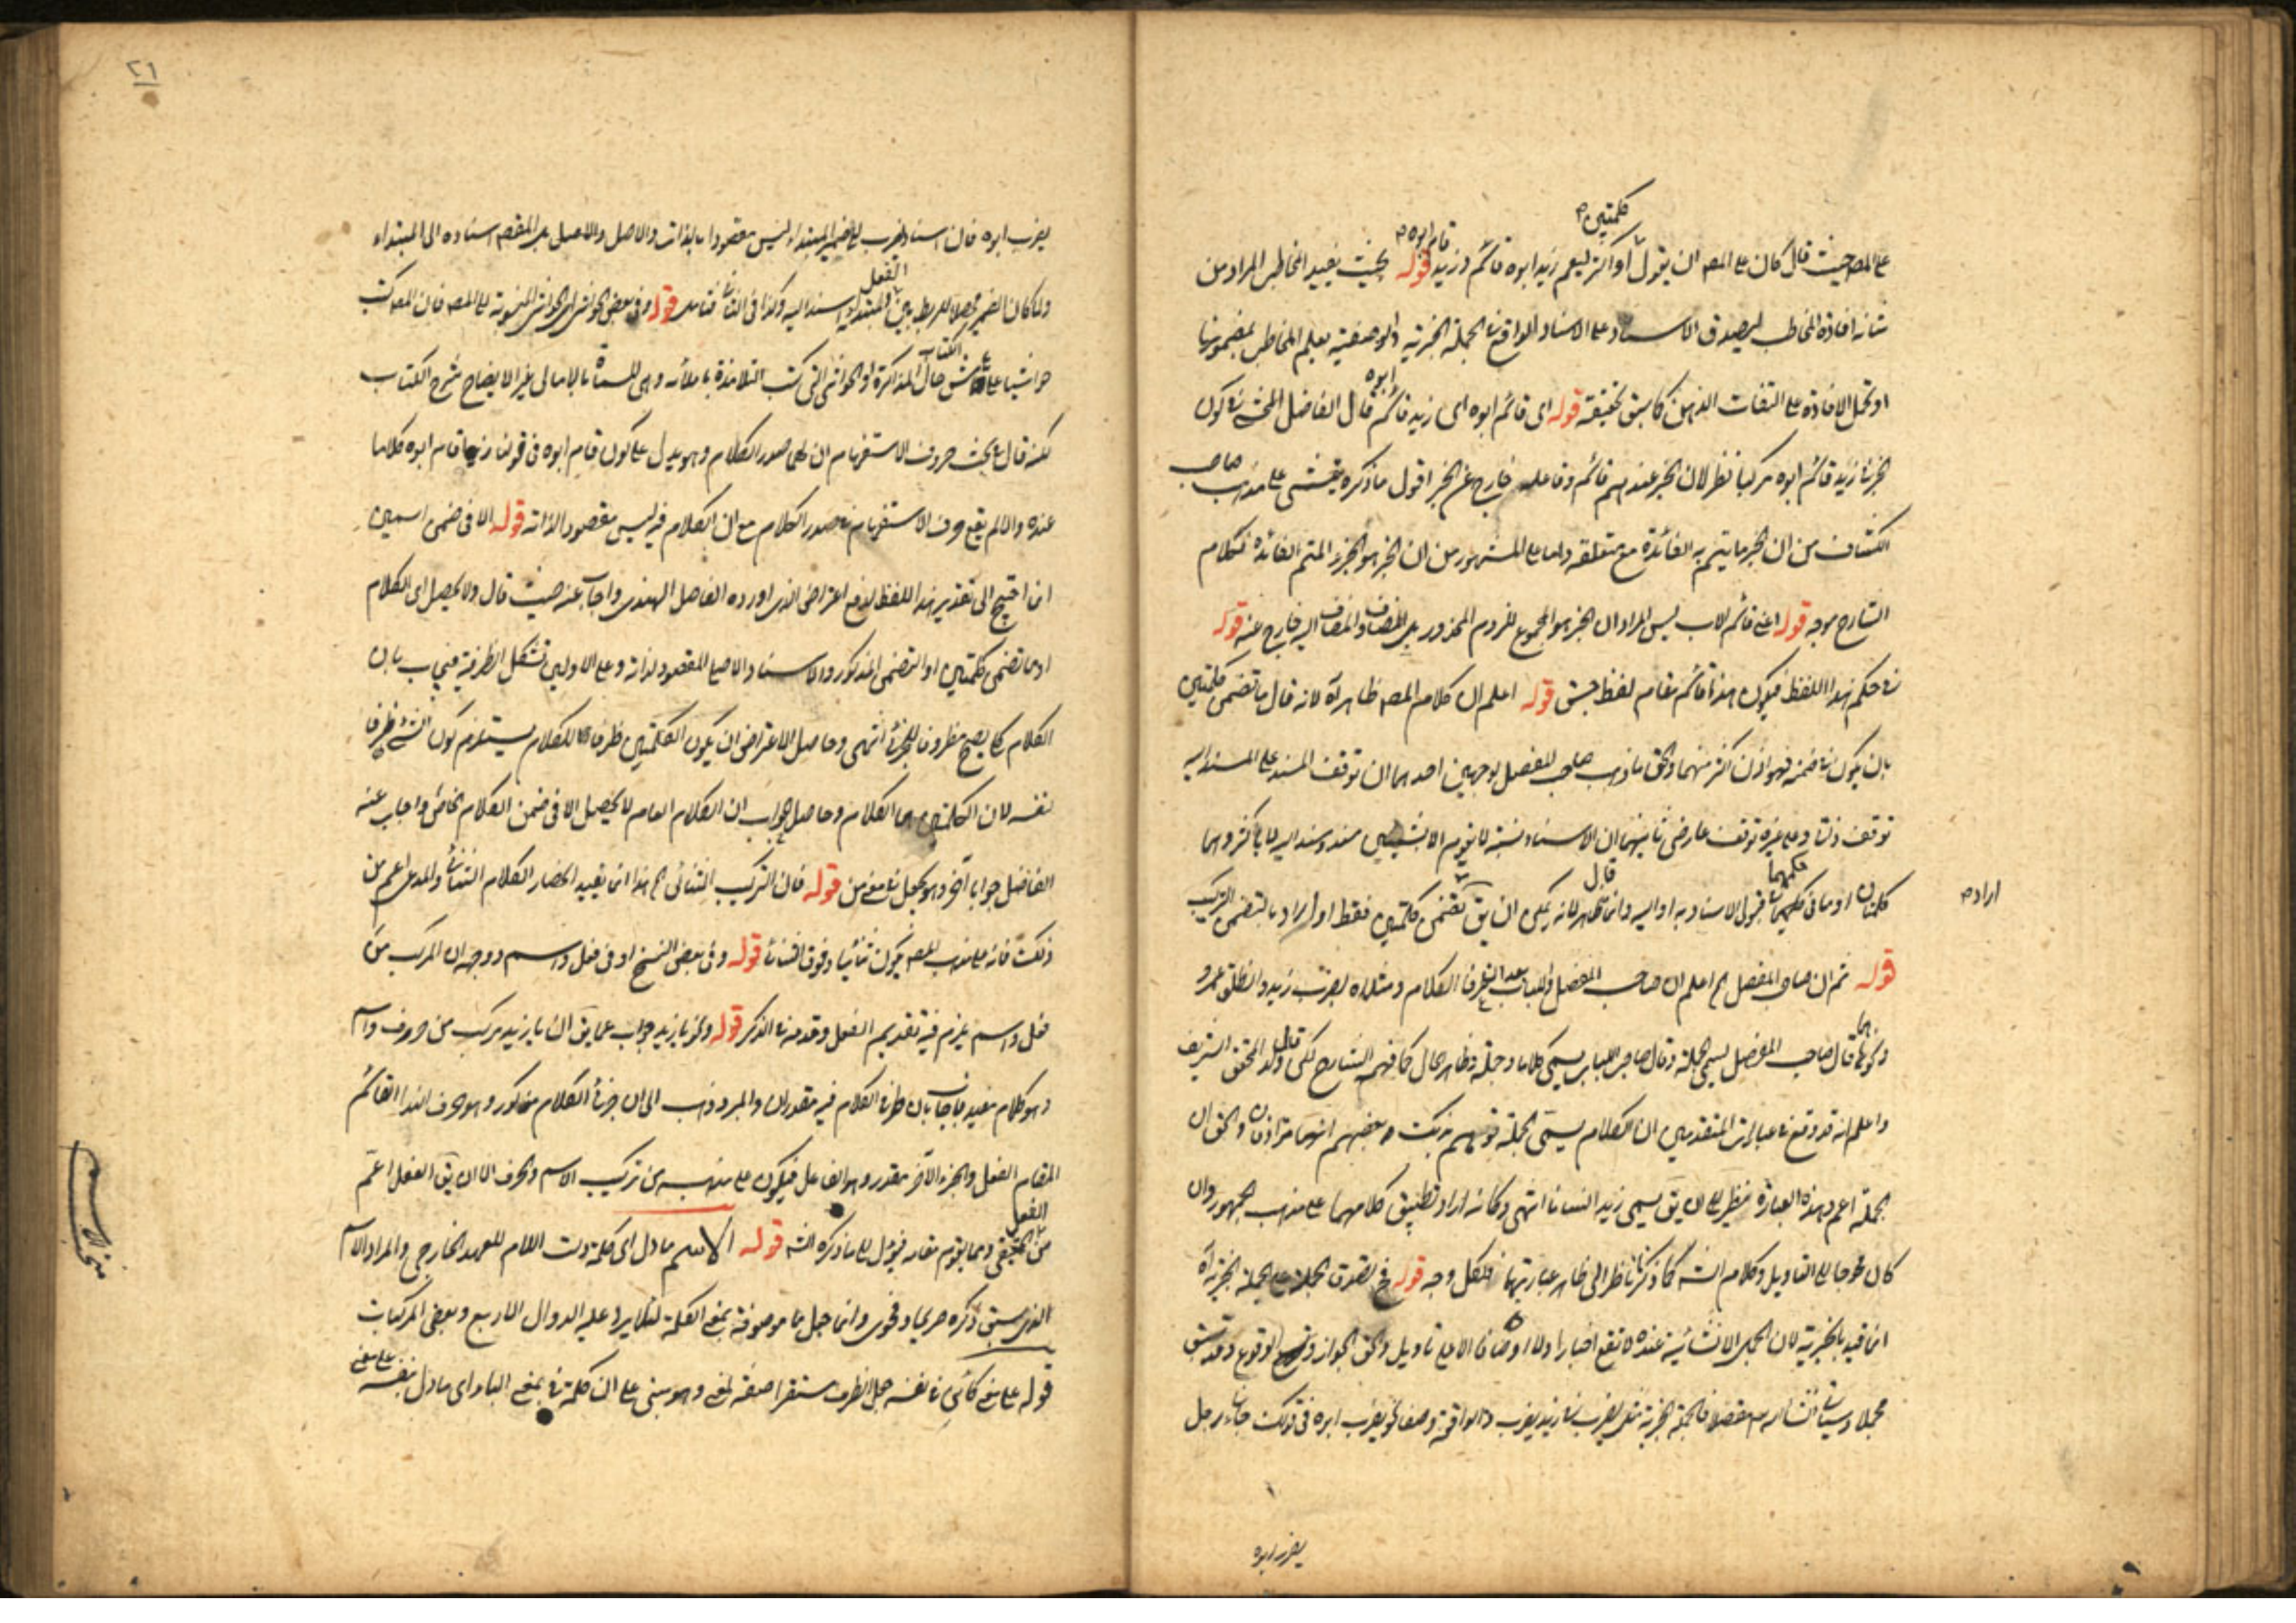 كلمتين
قام ابوه
على المصـ حيث قال كان على المصـ ان يقول او اكثر ليعم زيد ابوه قائم وزيد قوله بحيث يفيد المخاطب المراد من
شانه افادة المخاطب ليصدق الاسناد على الاسناد الواقع في الجملة الخبرية والوصفية يعلم المخاطب بمضمونها
او تحمل الافادة على التفات الذهن كما سبق تحقيقه قوله اى قائم ابوه اى زيد قائم ابوه قال الفاضل المحشى في كون
الخبر في زيد قائم ابوه مركبا نظر لان الخبر عندهم قائم وفاعله خارج عن الخبر اقول ما ذكره يتمشى على مذهب صاحب
الكشاف من ان الخبر ما يتم به الفائدة مع متعلقه واما على المشهور من ان الخبر هو الجزء المتم الفائدة فكلام
الشارح موجه قوله اعنى قائم الاب ليس المراد ان الخبر هو المجموع للزوم المحذور بل المضاف والمضاف اليه خارج عنه قوله
في حكم هذا اللفظ فيكون هذا قائم مقام لفظ جسق قوله اعلم ان كلام المصـ ظاهر آه لانه قال ما تضمن كلمتين
بان يكون في ضمنه فهو اذن اكثر منهما والحق ما ذهب صاحب المفصل لوجهين احدهما ان توقف المسند على المسند اليه
توقف ذاتى وعلى غيره توقف عارضى ثانيهما ان الاسناد نسبة لا يقوم الا بشيئين مسند ومسند اليه لا باكثر وهما
كلمتان او ما فى حكمهما قبول الاسناد به او اليه وانما قال ظاهر لانه يمكن ان يق تضمن كلمتين فقط او اراد بالتضمن التركيب
اراده
قوله ثم ان صاحب المفصل الخ اعلم ان صاحب المفصل واللباب بعد التعرف الكلام ومثلاه بضرب زيد وانطلق عمرو
ونحوهما قال صاحب المفصل يسمى الجملة وقال صاحب اللباب يسمى كلاما وجملة وظاهر الحال كما فهم الشارح لكن قال ولد المحقق الشريف
واعلم انه قد وقع في عبارات المتقدمين ان الكلام يسمى الجملة فتوهم بذلك بعضهم انهما مترادفان والحق ان
الجملة اعم وهذه العبارة نظير ان يق يسمى زيد انسانا انتهى وكانه اراد تطبيق كلامهما على مذهب الجمهور وان
كان محوجا الى التاويل وكلام الشـ كما ذكرنا ناظر الى ظاهر عبارتهما فلكل وجه قوله فح يصدق الجملة على الجملة الخبرية آه
انما قيد بالخبرية لان الجمل الانشائية عنده لا تقع اخبارا ولا اوصافا الا مع تاويل والحق الجواز والوقوع وقد سبق
مجملا وسياتى ان شاء الله مفصلا فالجملة الخبرية مثل يضرب في زيد يضرب والواقعة وصفا نحو يضرب ابوه فى قولك جاءنى رجل
يضرب ابوه
٢٦
يضرب ابوه فان اسناد يضرب الى ضمير المبتداء ليس مقصودا بالذات والاصل والاصل بل المقصد اسناده الى المبتداء
ولما كان الضمير محصلا للربط بين الفعل والمبتداء اسند اليه وكذا فى الثانى فتامل قوله وفى بعض الحواشى اى الحواشى المنسوبة الى المصـ فان المصـ كتب
حواشيا على الكتاب حال المذاكرة او الحواشى التى كتب التلامذة باملائه وهى المسماة بالامالى غير الايضاح شرح الكتاب
لكنه قال في بحث حروف الاستفهام ان لها صدر الكلام وهو يدل على كون قام ابوه فى قولنا زيد اقام ابوه كلاما
عنده والا لم يقع حرف الاستفهام في صدر الكلام مع ان الكلام فيه ليس مقصودا لذاته قوله الا فى ضمن اسمين
انما احتيج الى تقدير هذا اللفظ لدفع اعتراض الذى اورده الفاضل الهندى واجاب عنه حيث قال ولا يحصل اى الكلام
او ما تضمن كلمتين او التضمن المذكور والاسناد الاصلى المقصود لذاته وعلى الاولين تشكل الظرفية فيجاب بان
الكلام كلى يصح مظروفا للجزئى انتهى وحاصل الاعتراض ان يكون الكلمتين ظرفا للكلام يستلزم كون الشئ ظرفا
لنفسه لان الكلمتين هما الكلام وحاصل الجواب ان الكلام العام لا يحصل الا فى ضمن الكلام الخاص واجاب عنه
الفاضل جوابا آخر وهو يجعل فى بمعنى من قوله فان التركيب الثنائى الخ هذا انما يفيد انحصار الكلام الثنائى والمدعى اعم من
ذلك فانه على مذهب المصـ يكون ثنائيا وفوق الثنائى قوله وفى بعض النسخ او فى فعل واسم ووجه ان المركب من
فعل واسم يلزم فيه تقديم الفعل وقدمه في الذكر قوله ونحو يا زيد جواب عما يق ان يا زيد مركب من حرف واسم
وهو كلام مفيد فاجاب بان طرفا الكلام فيه مقدران والمبرد ذهب الى ان جزء الكلام مذكور وهو حرف النداء القائم
المقام الفعل والجزء الآخر مقدر وهو الفاعل فيكون على مذهبه من تركيب الاسم والحرف الا ان يق الفعل اعم
من الفعل الحقيقى ومما يقوم مقامه فيؤل الى ما ذكره الشـ قوله الاسم ما دل اى كلمة دلت اللام للعهد الخارجى والمراد الاسم
الذى سبق ذكره صريحا وفحوى وانما جعل ما موصوفة بمعنى الكلمة لئلا يرد عليه الدوال الاربع وبعض المركبات
قوله على معنى كائن في نفسه جعل الظرف مستقرا صفة لمعنى وهو مبنى على ان كلمة في بمعنى الباء اى ما دل على معنى بنفسه
مبحث الاسم